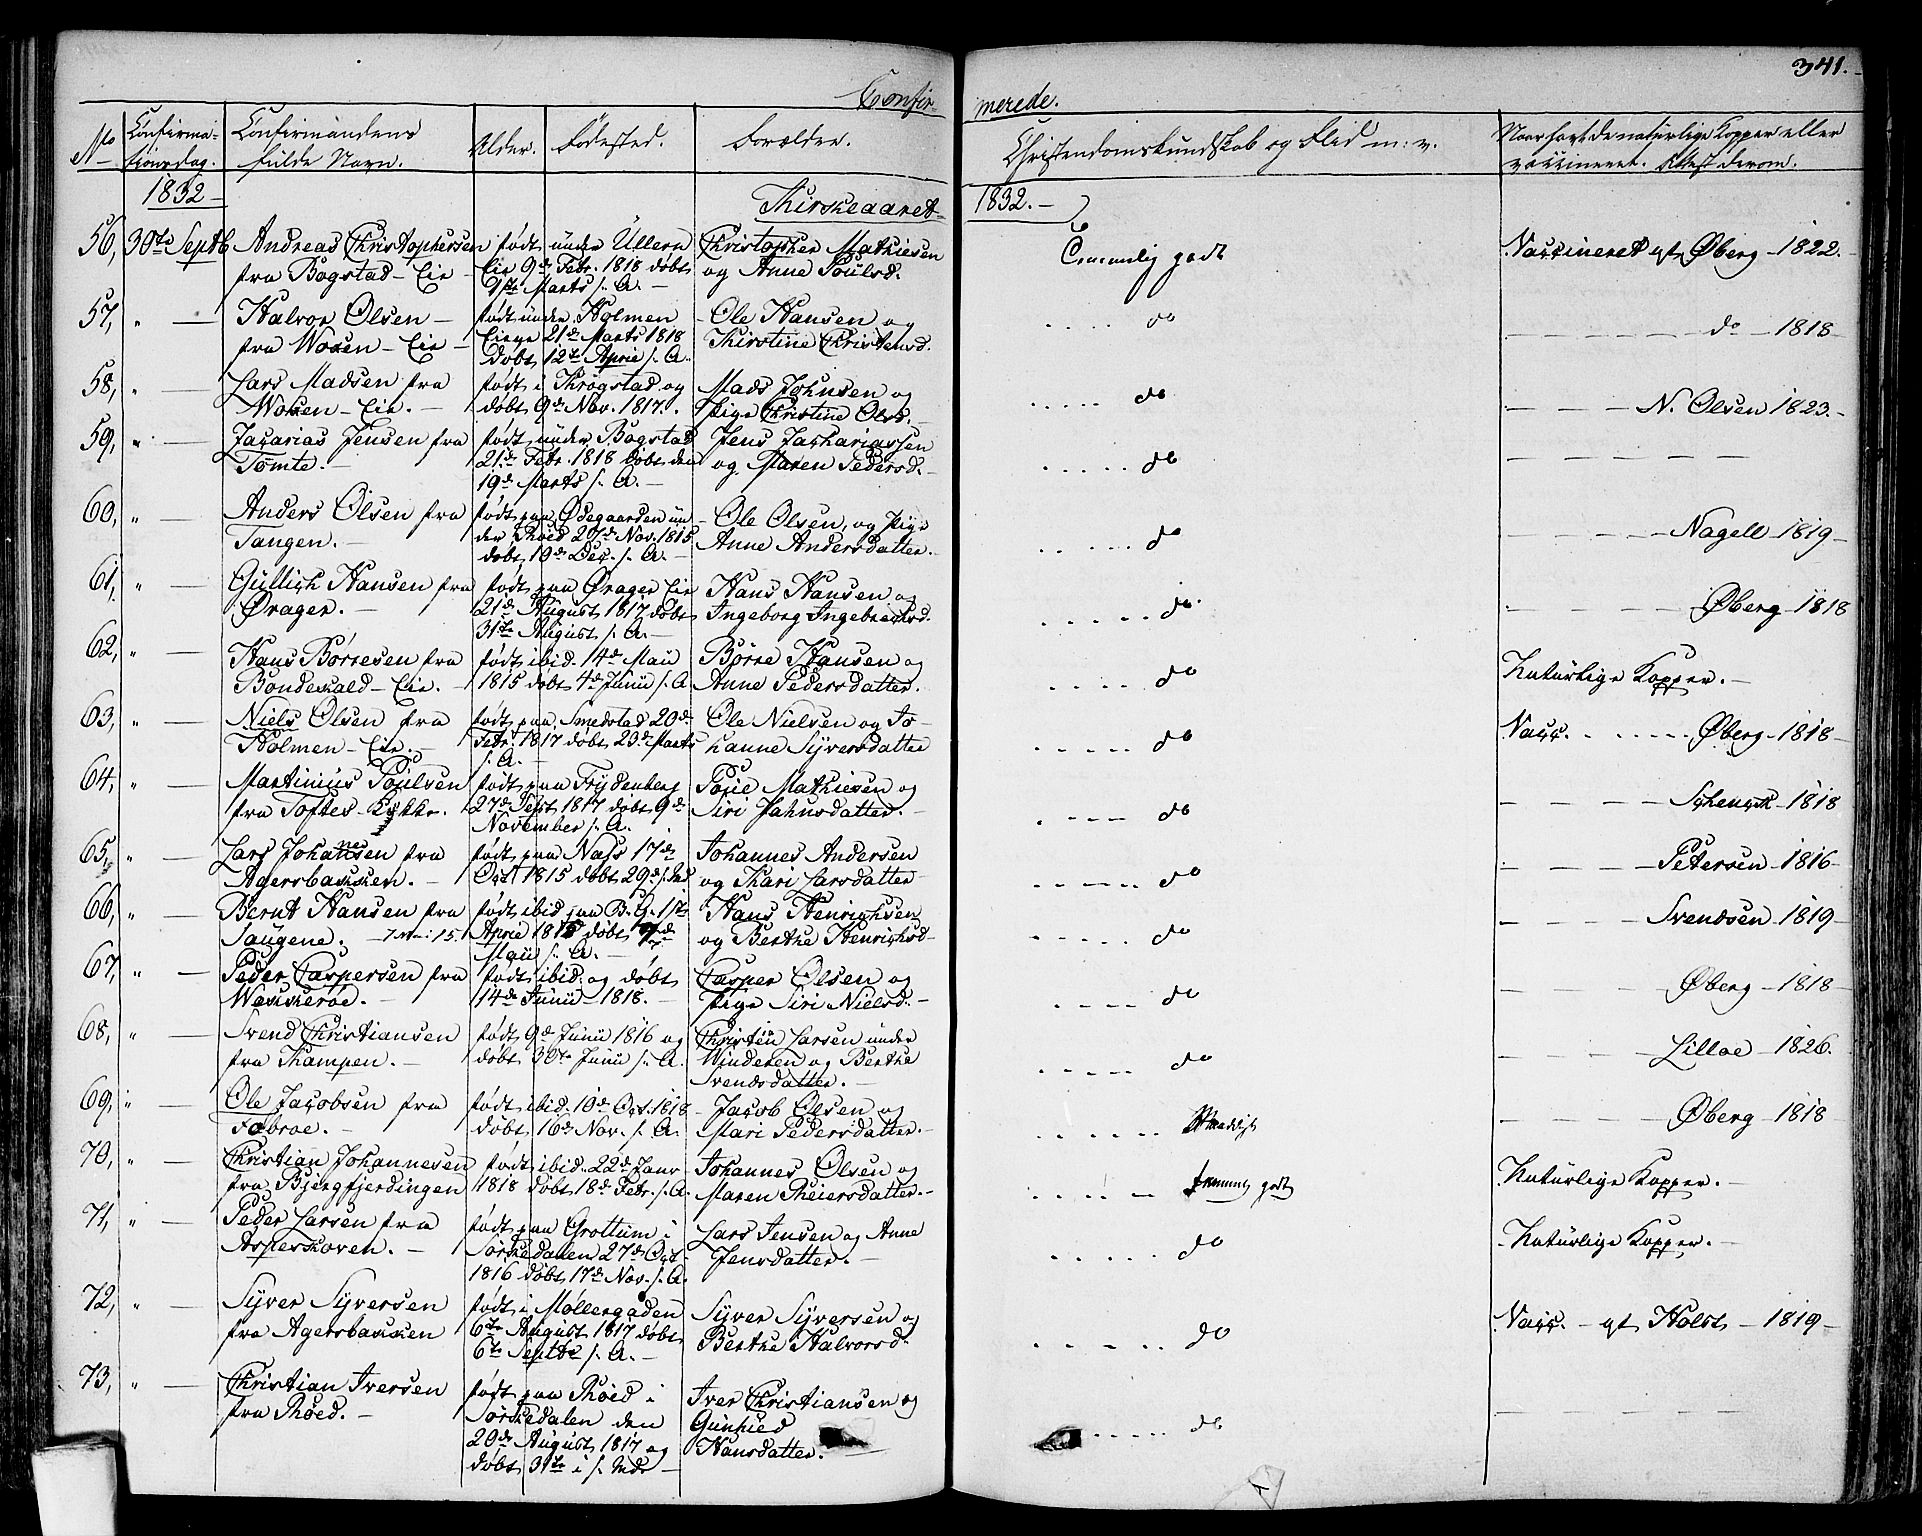 341.
Confir-
merede.
No
Confirma-
tionsdag.
Confirmandens
fulde Navn.
Alder.
Fødested.
Forældre.
Christendomskundskab og Flid m: v.
Naar havt de naturlige Kopper eller
vaccineret. Attest derom.
1832 -
Kirkeaaret
1832. -
56, 30te Septb Andreas Christophersen
fra Bogstad - Eie -
født under Ullern
Eie 9de Febr. 1818 døbt
1ste Marts s. A. -
Christopher Mathiesen
og Anne Poulsd.
Temmelig godt
Vaccineret af Øberg - 1822. -
57, " - Halvor Olsen -
fra Woxen - Eie -
født under Holmen
Eiege 21de Marts 1818
døbt 12te April s. A.
Ole Hansen og
Kirstine Christensd.
do
do - 1818 -
58, " - Lars Madsen fra
Woxen - Eie. -
født i Throgstad og
døbt 9de Nov. 1817.
Mads Johnsen og
Pige Christine Olsd. -
do
N. Olsen 1823. -
59, " - Zacarias Jensen fra
Tomte. -
født under Bogstad
21de Febr. 1818 døbt den
19de Marts s. A. -
Jens Zachariassen
og Maren Pedersd. -
do
60, " - Anders Olsen fra
Tangen. -
født paa Ødegaarden un
der Røed 27de Nov. 1815
døbt 10de Dec. s. A. -
Ole Olsen, og Pige
Anne Andersdatter. -
do
Nagell - 1819 -
61, " - Gullich Hansen fra
Ørager. -
født paa Ørager Eie
21de August 1817 døbt
31te August s. A. -
Hans Hansen og
Ingeborg Ingebretsd.
do
Øberg - 1818
62, " - Hans Børresen fra
Bondekald - Eie. -
født ibid. 14de Maii
1815 døbt 4de Junii s. A
Børre Hansen og
Anne Pedersdatter. -
do
Naturlige Kopper. -
63, " - Niels Olsen fra
Holmen - Eie. -
født paa Smedstad 20de
Febr. 1817 døbt 23de Marts
s. A. -
Ole Nielsen og Jo-
hanne Syversdatter
do
Vacc. Øberg - 1818 -
64, " - Martinius Poulsen
fra Toftes - Løkke. -
født paa Frydenberg
27de Sept 1817 døbt 9de
November s. A.
Poul Mathiesen og
Siri Jahnsdatter. -
do
Schenck - 1818
65, " - Lars Johannesen fra
Agersbakken. -
født paa Næss 17de
Oct 1815 døbt 29de s. Md
Johannes Andersen
og Kari Larsdatter
do
Petersen - 1816 -
66, " - Bernt Hansen fra
Saugene. -
født ibid paa B. G. 1ste
April 1815 døbt 7de
Maii s. A. -
Hans Henrichsen
og Berthe Henrichsd -
do
Svendsen - 1819 -
67, " - Peder Caspersen fra
Wækkerøe. -
født ibid. og døbt
14de Junii 1818. -
Casper Olsen og
Pige Siri Nielsd. -
do
Øberg - 1818 -
68, " - Svend Christiansen
fra Kampen. -
født 9de Junii 1816 og
døbt 30te Junii s. A.
Christen Larsen under
Winderen og Berthe
Svendsdatter. -
do
Lilloe - 1826.
69, " - Ole Jacobsen fra
Fobroe. -
født ibid. 10de Oct. 1818
døbt 16de Nov. s. A.
Jacob Olsen og
Mari Pedersdatter. -
Maadeligt
Øberg - 1818
70, " - Christian Johannesen
fra Bjergfjerdingen
født ibid. 22de Janr
1818 døbt 18de Febr. s. A.
Johannes Olsen og
Maren Reiersdatter. -
temmelig godt
Naturlige Kopper. -
71, " - Peder Larsen fra
Asperskoven. -
født paa Grottum i
Sørkedalen 27de Oct
1816 døbt 17de Nov. s. A.
Lars Jensen og Anne
Jensdatter. -
do
Naturlige Kopper. -
72, " - Syver Syversen
fra Agersbakken
født i Møllergaden
6te August 1817 døbt
6te Septbr s. A. -
Syver Syversen og
Berthe Halvorsd.
do
Vacc. - af Holst - 1819 -
73, " - Christian Iversen
fra Røed. -
født paa Røed i
Sørkedalen den
20de August 1817 og
døbt 31te i s. Md -
Iver Christiansen og
Gunhied
Hansdatter. -
do